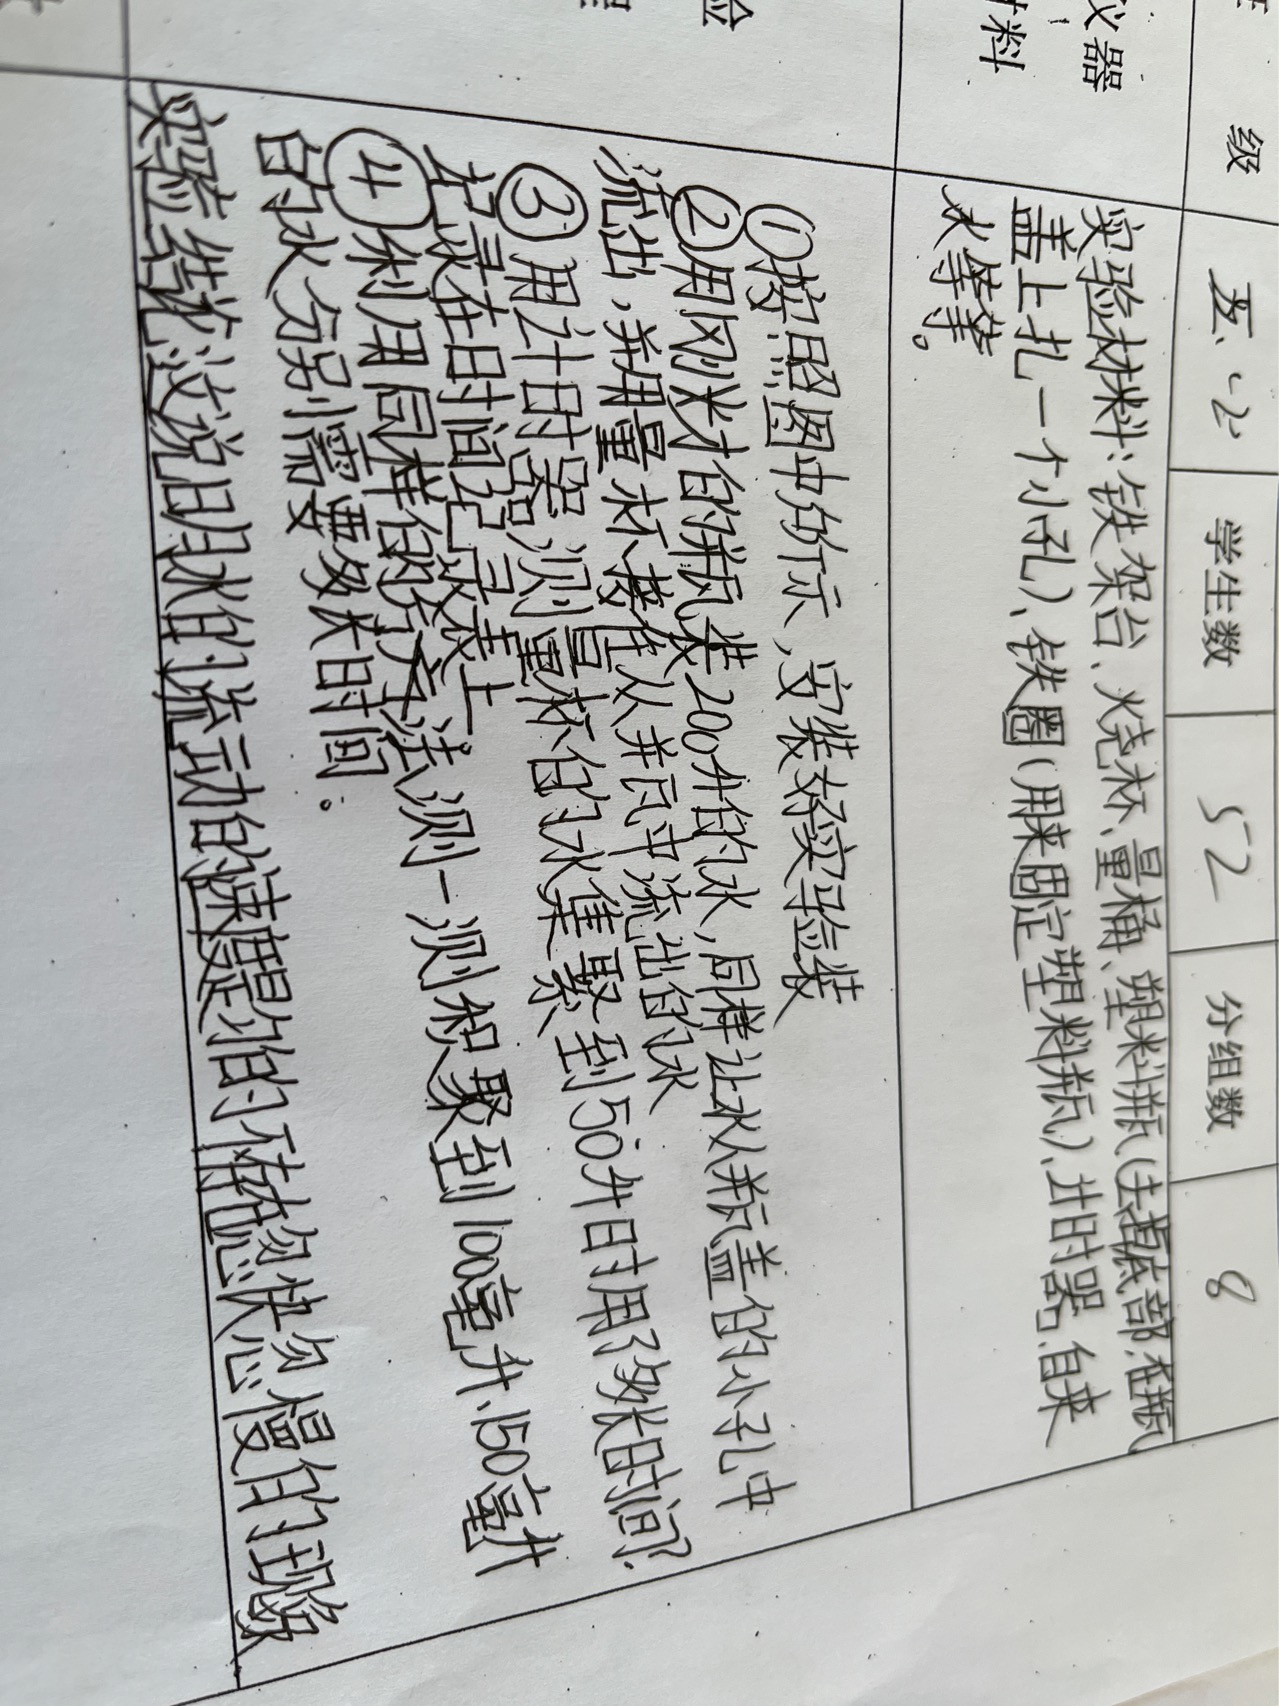 级 五、2 学生数 52 分组数 8
仪器
材料
实验材料:铁架台、烧杯、量桶、塑料瓶(去掉底部,在瓶
盖上扎一个小孔)、铁圈(用来固定塑料瓶)、计时器、自来
水等等。
验
①按照图中所示,安装好实验装
②用刚才的瓶装200升的水,同样让水从瓶盖的小孔中
流出,并用量杯接住从瓶中流出的水
③用计时器测量杯的水集聚到50升时用了多长时间?
记录在时间记录表上
④利用同样的方法测一测积聚到100毫升、150毫升
的水分别需要多长时间。
实验结论:没说明水的流动的速度是
快忽慢的现象